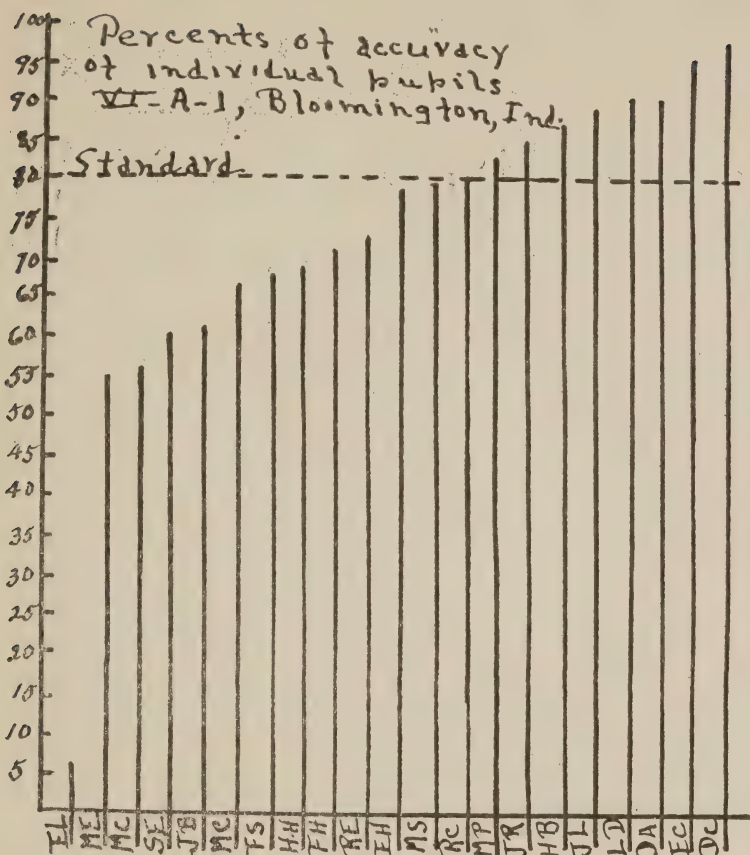 100
Percents of accuracy
95
of individual pupils
90
VI-A-1, Bloomington, Ind.
85
Standard
80
75
70
65
60
55
50
45
40
35
30
25
20
15
10
5
EL ME MC SE JB MC FS HH FH RE EH MS RC MP JR HB JL LD DA EC DC